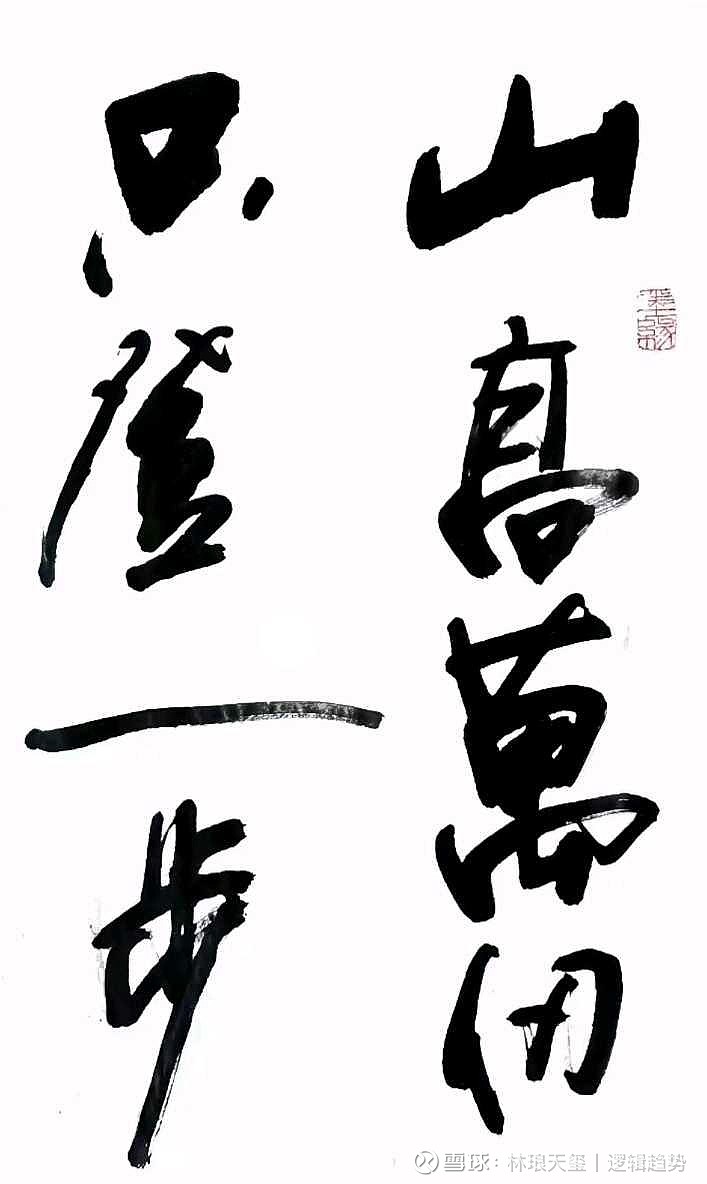 山高萬仞
只登一步
雪球：林琅天玺丨逻辑趋势